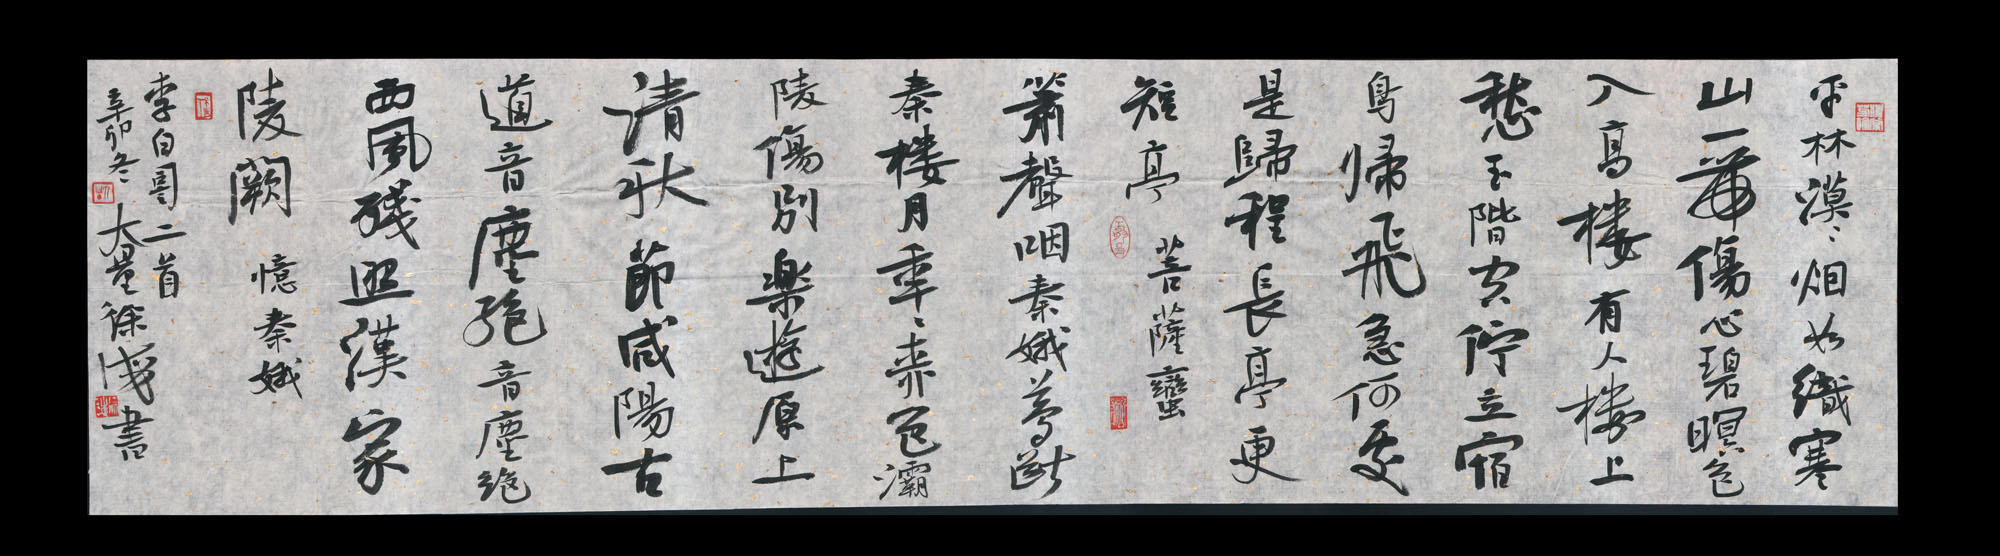 平林漠漠烟如織寒
山一帶傷心碧暝色
入高樓有人樓上
愁玉階空佇立宿
鳥歸飛急何處
是歸程長亭更
短亭 菩薩蠻
簫聲咽秦娥夢斷
秦樓月年年柳色灞
陵傷別樂遊原上
清秋節咸陽古
道音塵絕音塵絕
西風殘照漢家
陵闕 憶秦娥
李白詞二首
辛卯冬 徐書